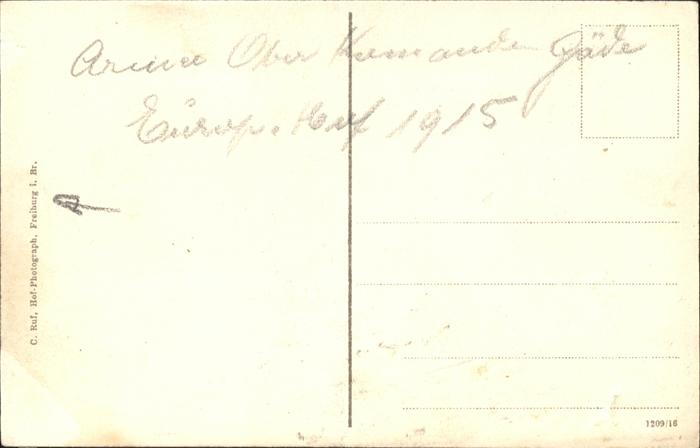 Armee Ober Komando Gäde
Europ. Hof 1915
C. Ruf, Hof-Photograph, Freiburg i. Br.
1209/16